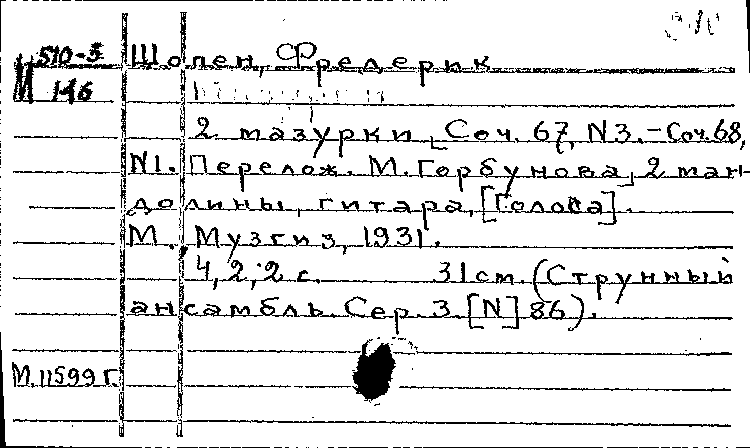 510-5 Шопен, Фредерик
М 146
2 мазурки [Соч. 67, N3.-Соч.68,
N1. Перелож. М. Горбунова], 2 ман-
долины, гитара, [Голоса].
М., Музгиз, 1931.
4, 2, 2 с. 31 см. (Струнный
ансамбль. Сер. 3. [N] 86).
М.11599 г.